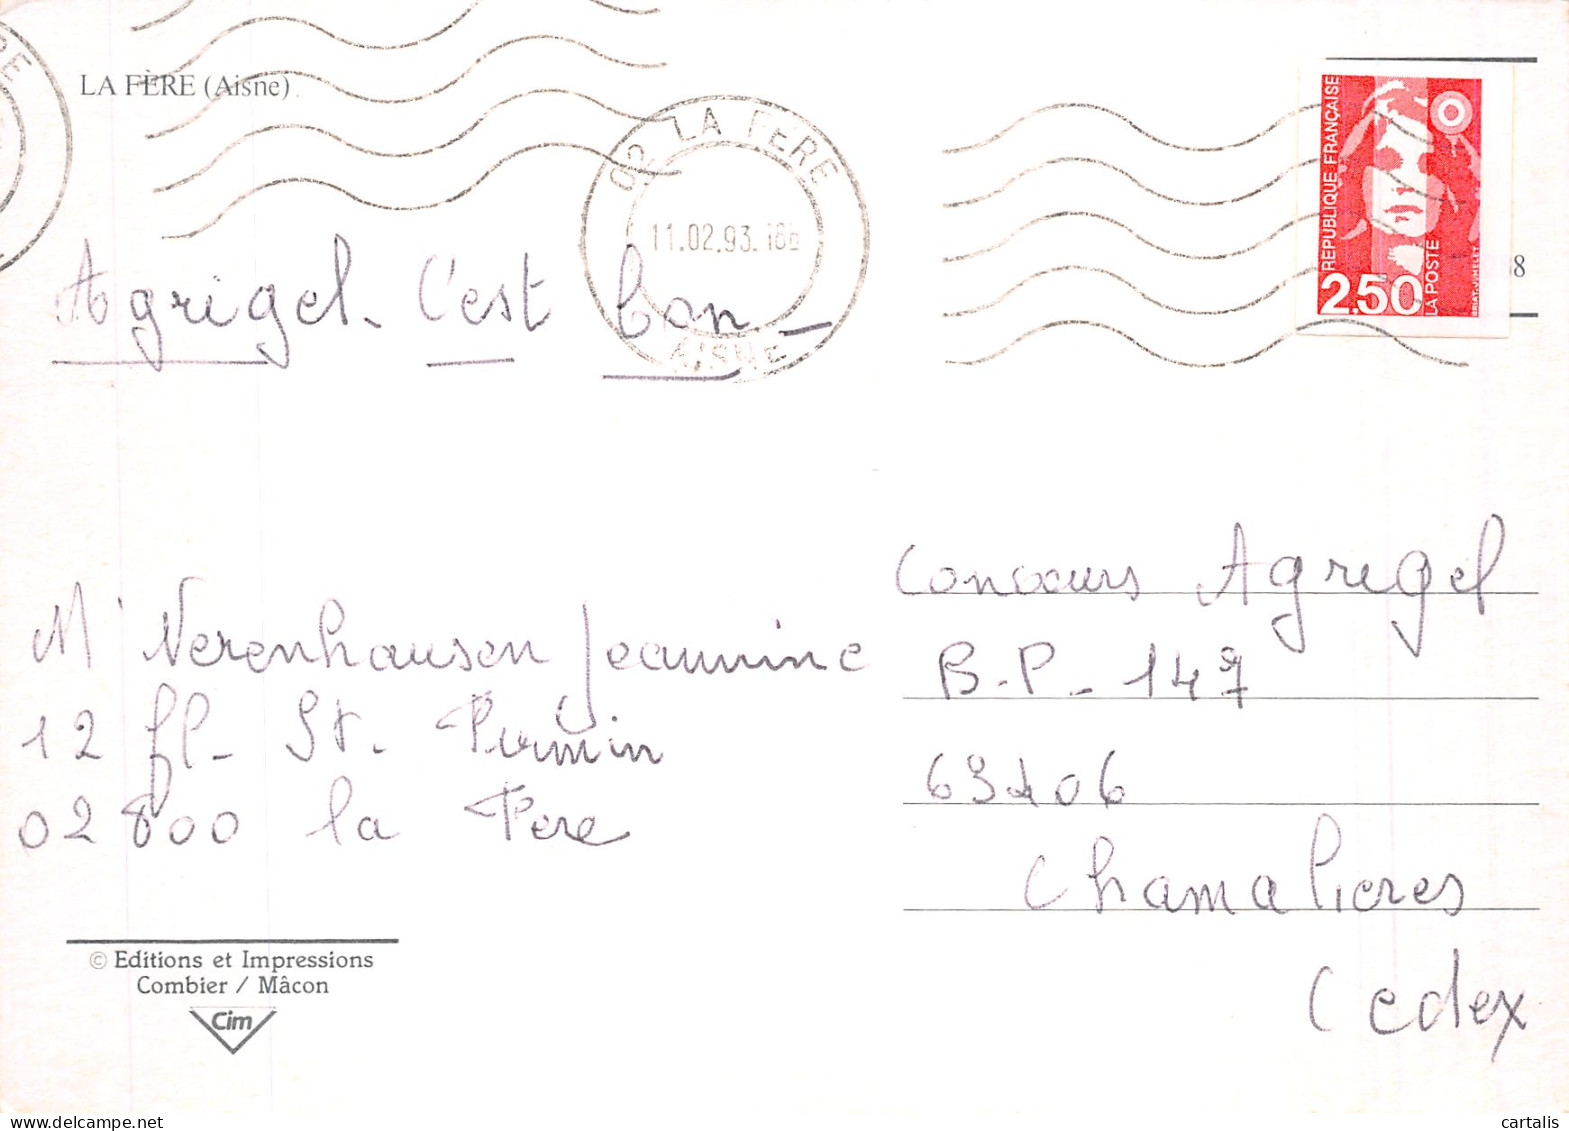 LA FÈRE (Aisne)
02 LA FERE
11.02.93.
AISNE
REPUBLIQUE FRANÇAISE
LA POSTE
2,50
Agrigel. C'est bon -
Concours Agrigel
B.P - 147
63406
Chamalieres
Cedex
Nerenhausen Jeannine
12 St. Firmin
02800 la Fere
© Editions et Impressions
Combier / Mâcon
Cim
cartalis